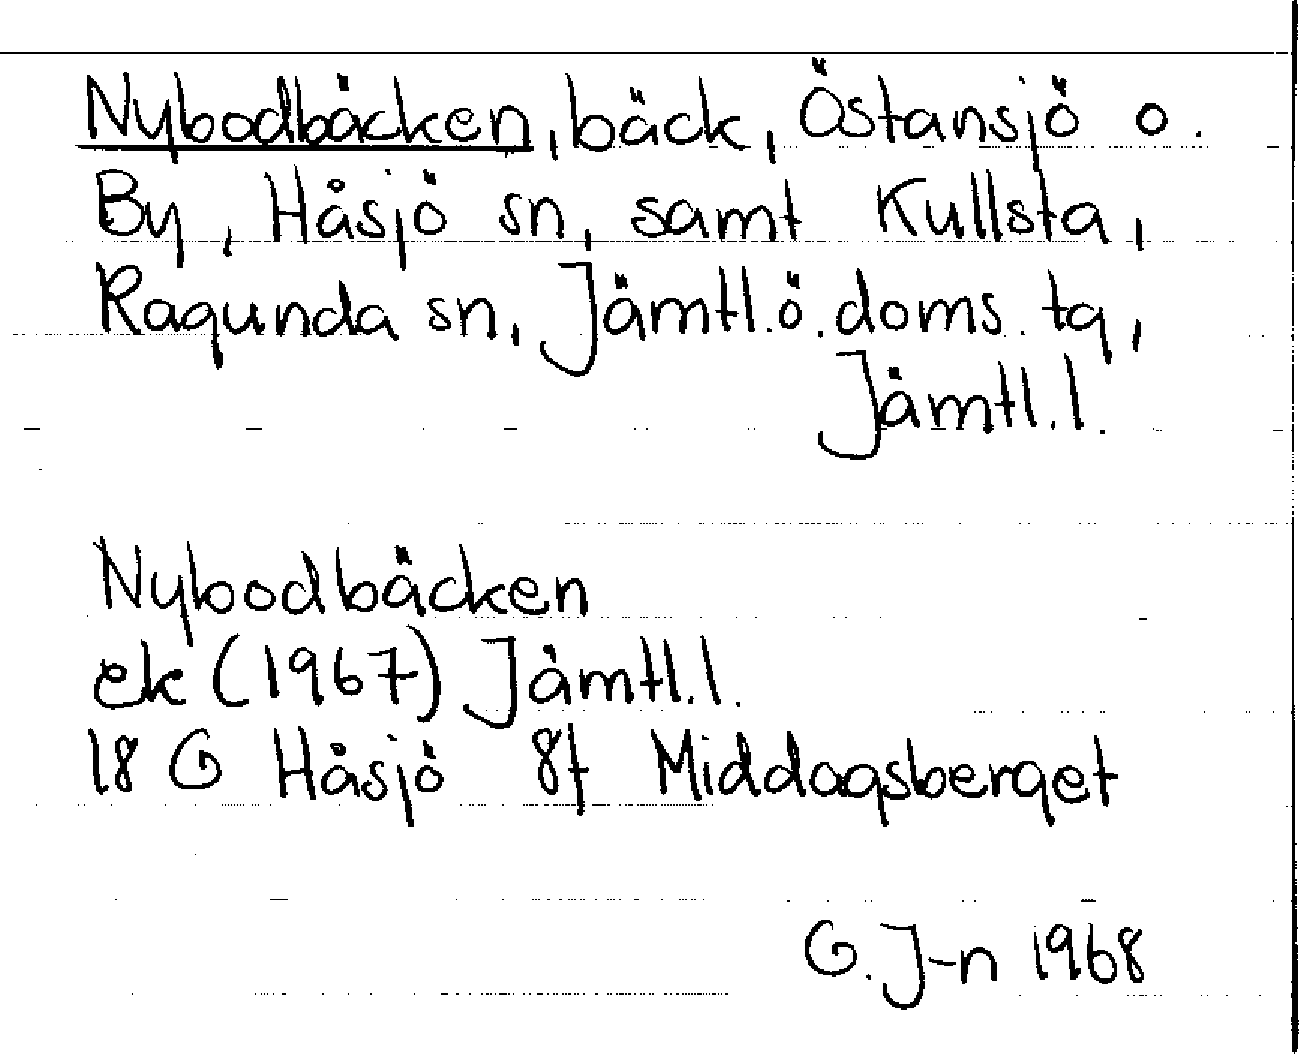 Nybodbäcken, bäck, Östansjö o.
By, Håsjö sn, samt Kullsta,
Ragunda sn, Jämtl.ö.doms.tg,
Jämtl.l.
Nybodbäcken
ek (1967) Jämtl.l.
18 G Håsjö 8f Middagsberget
G. J-n 1968